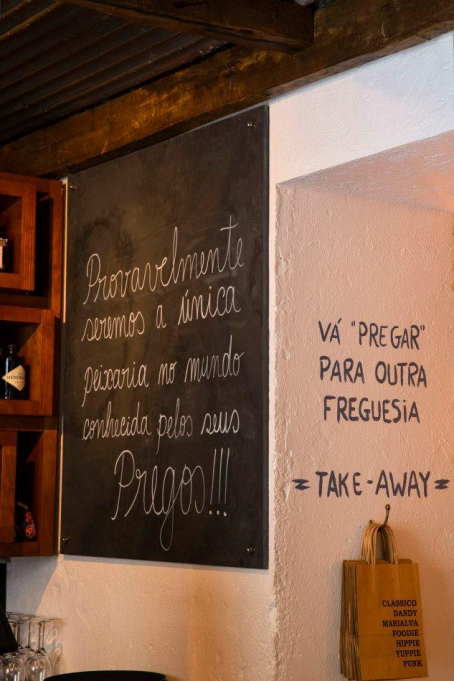 Provavelmente
seremos a única
peixaria no mundo
conhecida pelos seus
Pregos!!!
VÁ "PREGAR"
PARA OUTRA
FREGUESiA
TAKE-AWAY
CLASSICO
DANDY
MARIALVA
FOODIE
HIPPIE
YUPPIE
PUNK